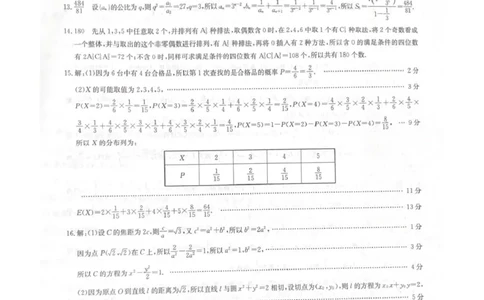 13. 484/81 设{aₙ}的公比为q,则q³=a₅/a₂=27,q=3,所以aₙ=3ⁿ⁻²,
14. 180 先从1,3,5中任意取2个,并排列有A²₃种排法,取偶数含0时,在2,4,6中取1个有C¹₃种取法,将2个奇数看成
一个整体,并与取出的这个非零偶数进行排列,有A²₂种方法,再将0插入有2种方法,所以含0的满足条件的四位数
15. 解:(1)因为6台中有4台合格品,所以第1次查找的是合格品的概率P=4/6=2/3. 2分
(2)X的可能取值为2,3,4,5. 3分
P(X=2)=2/6×1/5=1/15,P(X=3)=2/6×4/5×1/4+4/6×2/5×1/4=2/15,P(X=4)=4/6×3/5×2/4×1/3+2/6×4/5×
3/4×1/3+4/6×2/5×3/4×1/3+4/6×3/5×2/4×1/3=4/15,P(X=5)=1-P(X=2)-P(X=3)-P(X=4)=8/15, 9分
所以X的分布列为:
X 2 3 4 5
P 1/15 2/15 4/15 8/15
11分
E(X)=2×1/15+3×2/15+4×4/15+5×8/15=64/15. 13分
16. 解:(1)设C的焦距为2c,则c/a=√3,又c²=a²+b²,所以b²=2a², 1分
因为点P(√2,√2)在C上,所以2/a²-2/2a²=1,所以a²=1,b²=2, 3分
所以C的方程为x²-y²/2=1. 4分
(2)因为原点O到直线l的距离为√2,所以直线l与圆x²+y²=2相切,设切点为(x₀,y₀),则l的方程为x₀x+y₀y=2.
5分